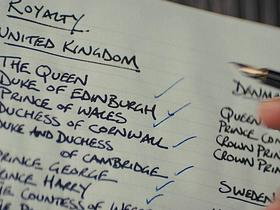 ROYALTY.
UNITED KINGDOM
THE QUEEN
DUKE OF EDINBURGH
PRINCE OF WALES
DUCHESS OF CORNWALL
DUKE AND DUCHESS
OF CAMBRIDGE
PRINCE GEORGE
PRINCE HARRY
THE COUNTESS OF
QUEEN
PRINCE
CROWN
CROWN
SWEDEN